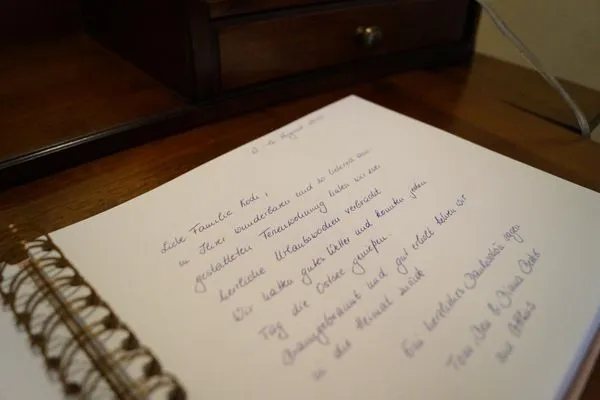 August
Liebe Familie Koch,
in Ihrer wunderbaren und so liebevoll
gestatteten Ferienwohnung haben wir zwei
herrliche Urlaubswochen verbracht.
Wir hatten gutes Wetter und konnten jeden
Tag die Ostsee genießen.
Braungebrannt und gut erholt fahren wir
in die Heimat zurück
Ein herzliches Dankeschön sagen
Tom, &
aus